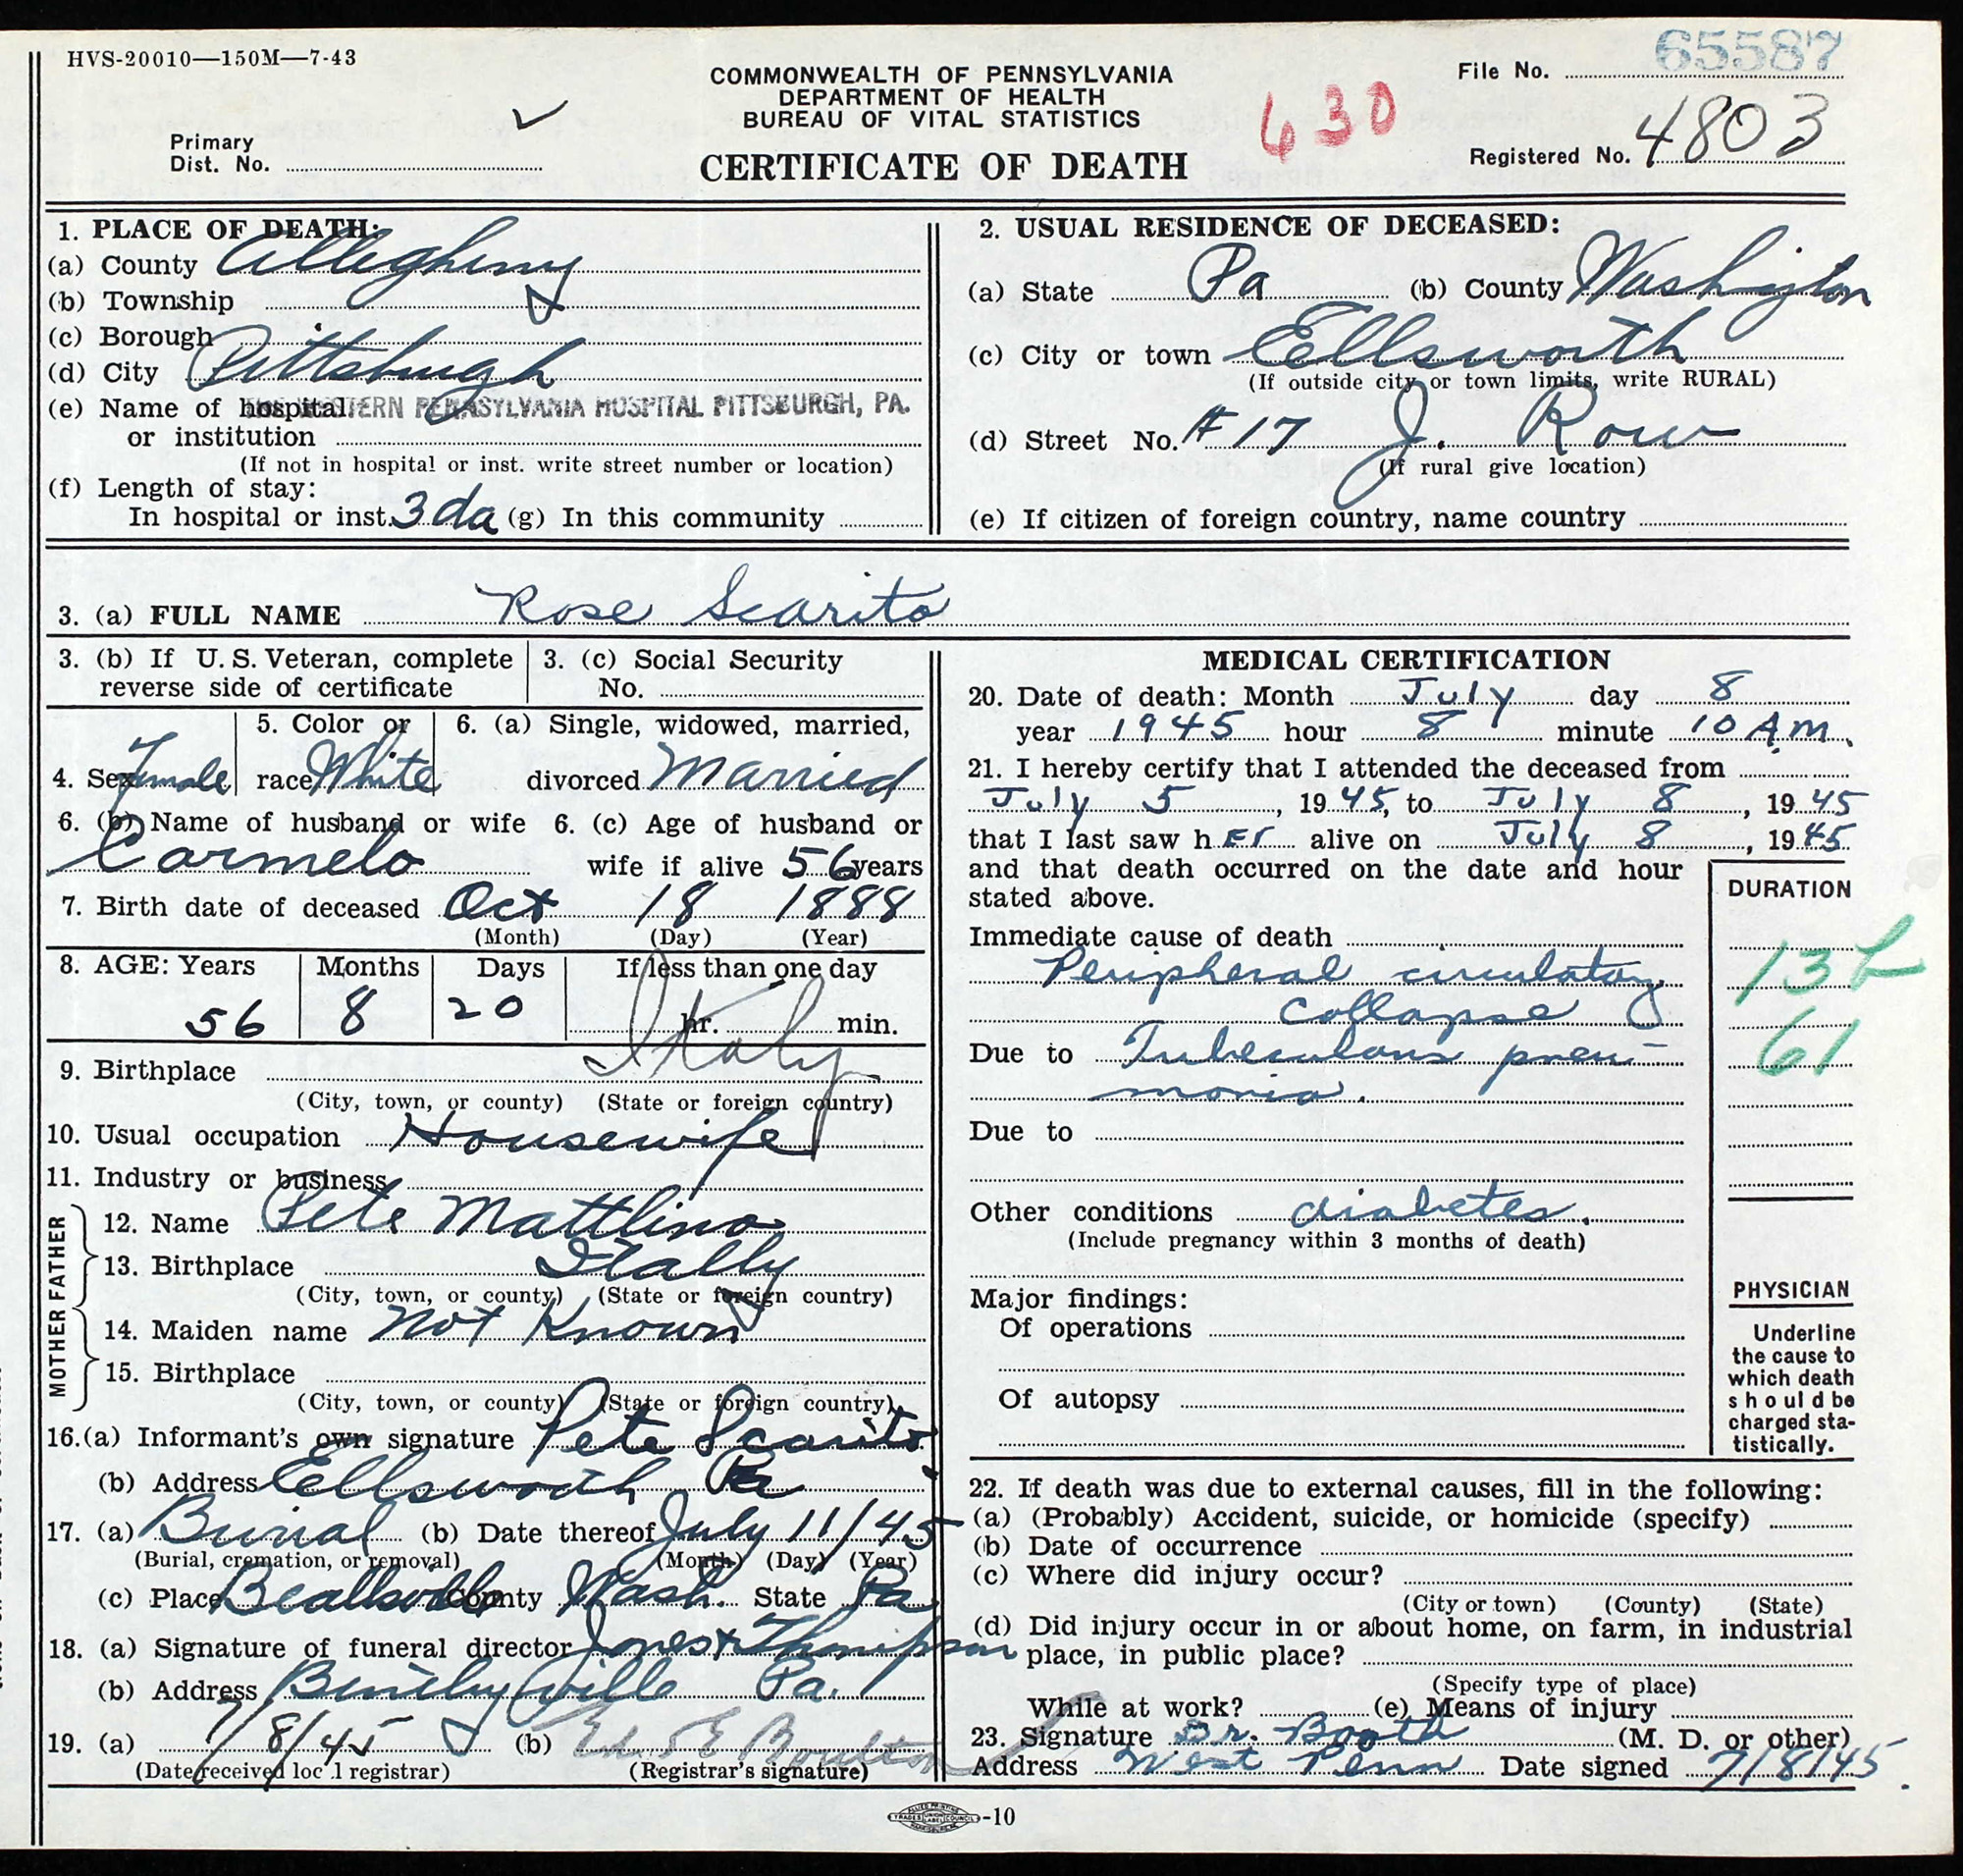 HVS-20010—150M—7-43
65587
File No.
COMMONWEALTH OF PENNSYLVANIA
DEPARTMENT OF HEALTH
BUREAU OF VITAL STATISTICS
630
4803
Registered No.
Primary
Dist. No.
CERTIFICATE OF DEATH
1. PLACE OF DEATH:
(a) County Allegheny
(b) Township
(c) Borough
(d) City Pittsburgh
(e) Name of hospital WESTERN PENNSYLVANIA HOSPITAL PITTSBURGH, PA.
or institution
(If not in hospital or inst. write street number or location)
(f) Length of stay:
In hospital or inst. 3 da (g) In this community
2. USUAL RESIDENCE OF DECEASED:
(a) State Pa (b) County Washington
(c) City or town Ellsworth
(If outside city or town limits, write RURAL)
(d) Street No. #17 J. Row
(If rural give location)
(e) If citizen of foreign country, name country
3. (a) FULL NAME Rose Scarito
3. (b) If U.S. Veteran, complete
reverse side of certificate
3. (c) Social Security
No.
4. Sex Female
5. Color or
race White
6. (a) Single, widowed, married,
divorced Married
6. (b) Name of husband or wife
Carmelo
6. (c) Age of husband or
wife if alive 56 years
7. Birth date of deceased Oct 18 1888
(Month) (Day) (Year)
8. AGE: Years Months Days If less than one day
56 8 20 hr. min.
9. Birthplace Italy
(City, town, or county) (State or foreign country)
10. Usual occupation Housewife
11. Industry or business
FATHER
12. Name Pete Mattlino
13. Birthplace Itally
(City, town, or county) (State or foreign country)
MOTHER
14. Maiden name Not Known
15. Birthplace
(City, town, or county) (State or foreign country)
16.(a) Informant's own signature Pete Scarito
(b) Address Ellsworth Pa
17. (a) Burial (b) Date thereof July 11/45
(Burial, cremation, or removal) (Month) (Day) (Year)
(c) Place Beallsville County Wash. State Pa
18. (a) Signature of funeral director Jones & Thompson
(b) Address Bentleyville Pa.
19. (a) 7/8/45 (b)
(Date received loc l registrar) (Registrar's signature)
MEDICAL CERTIFICATION
20. Date of death: Month July day 8
year 1945 hour 8 minute 10 A.M.
21. I hereby certify that I attended the deceased from
July 5, 1945, to July 8, 1945
that I last saw hEr alive on July 8, 1945.
and that death occurred on the date and hour
stated above.
DURATION
Immediate cause of death
Peripheral circulatory
collapse
13b
Due to Tuberculous pneu-
monia.
61
Due to
Other conditions diabetes.
(Include pregnancy within 3 months of death)
Major findings:
Of operations
Of autopsy
PHYSICIAN
Underline
the cause to
which death
should be
charged sta-
tistically.
22. If death was due to external causes, fill in the following:
(a) (Probably) Accident, suicide, or homicide (specify)
(b) Date of occurrence
(c) Where did injury occur?
(City or town) (County) (State)
(d) Did injury occur in or about home, on farm, in industrial
place, in public place?
(Specify type of place)
While at work? (e) Means of injury
23. Signature Dr. Booth (M. D. or other)
Address West Penn Date signed 7/8/45.
-10